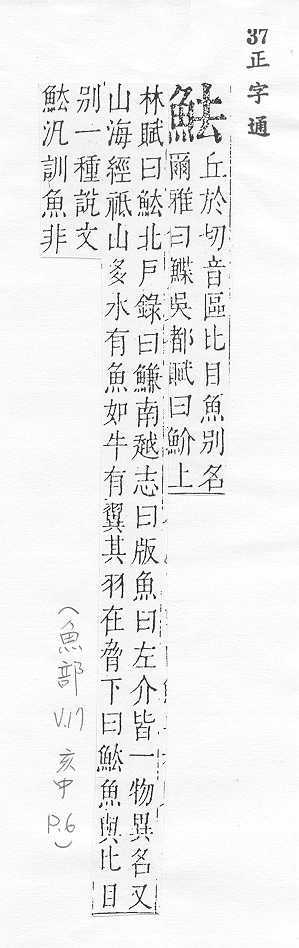 37正字通
魼
丘於切音區比目魚別名
爾雅曰鰈吳都賦曰魪上
林賦曰魼北戶錄曰鰜南越志曰版魚曰左介皆一物異名又
山海經祗山多水有魚如牛有翼其羽在脅下曰魼魚與比目
別一種說文
魼汎訓魚非
(魚部
V.17
亥中
P.6)